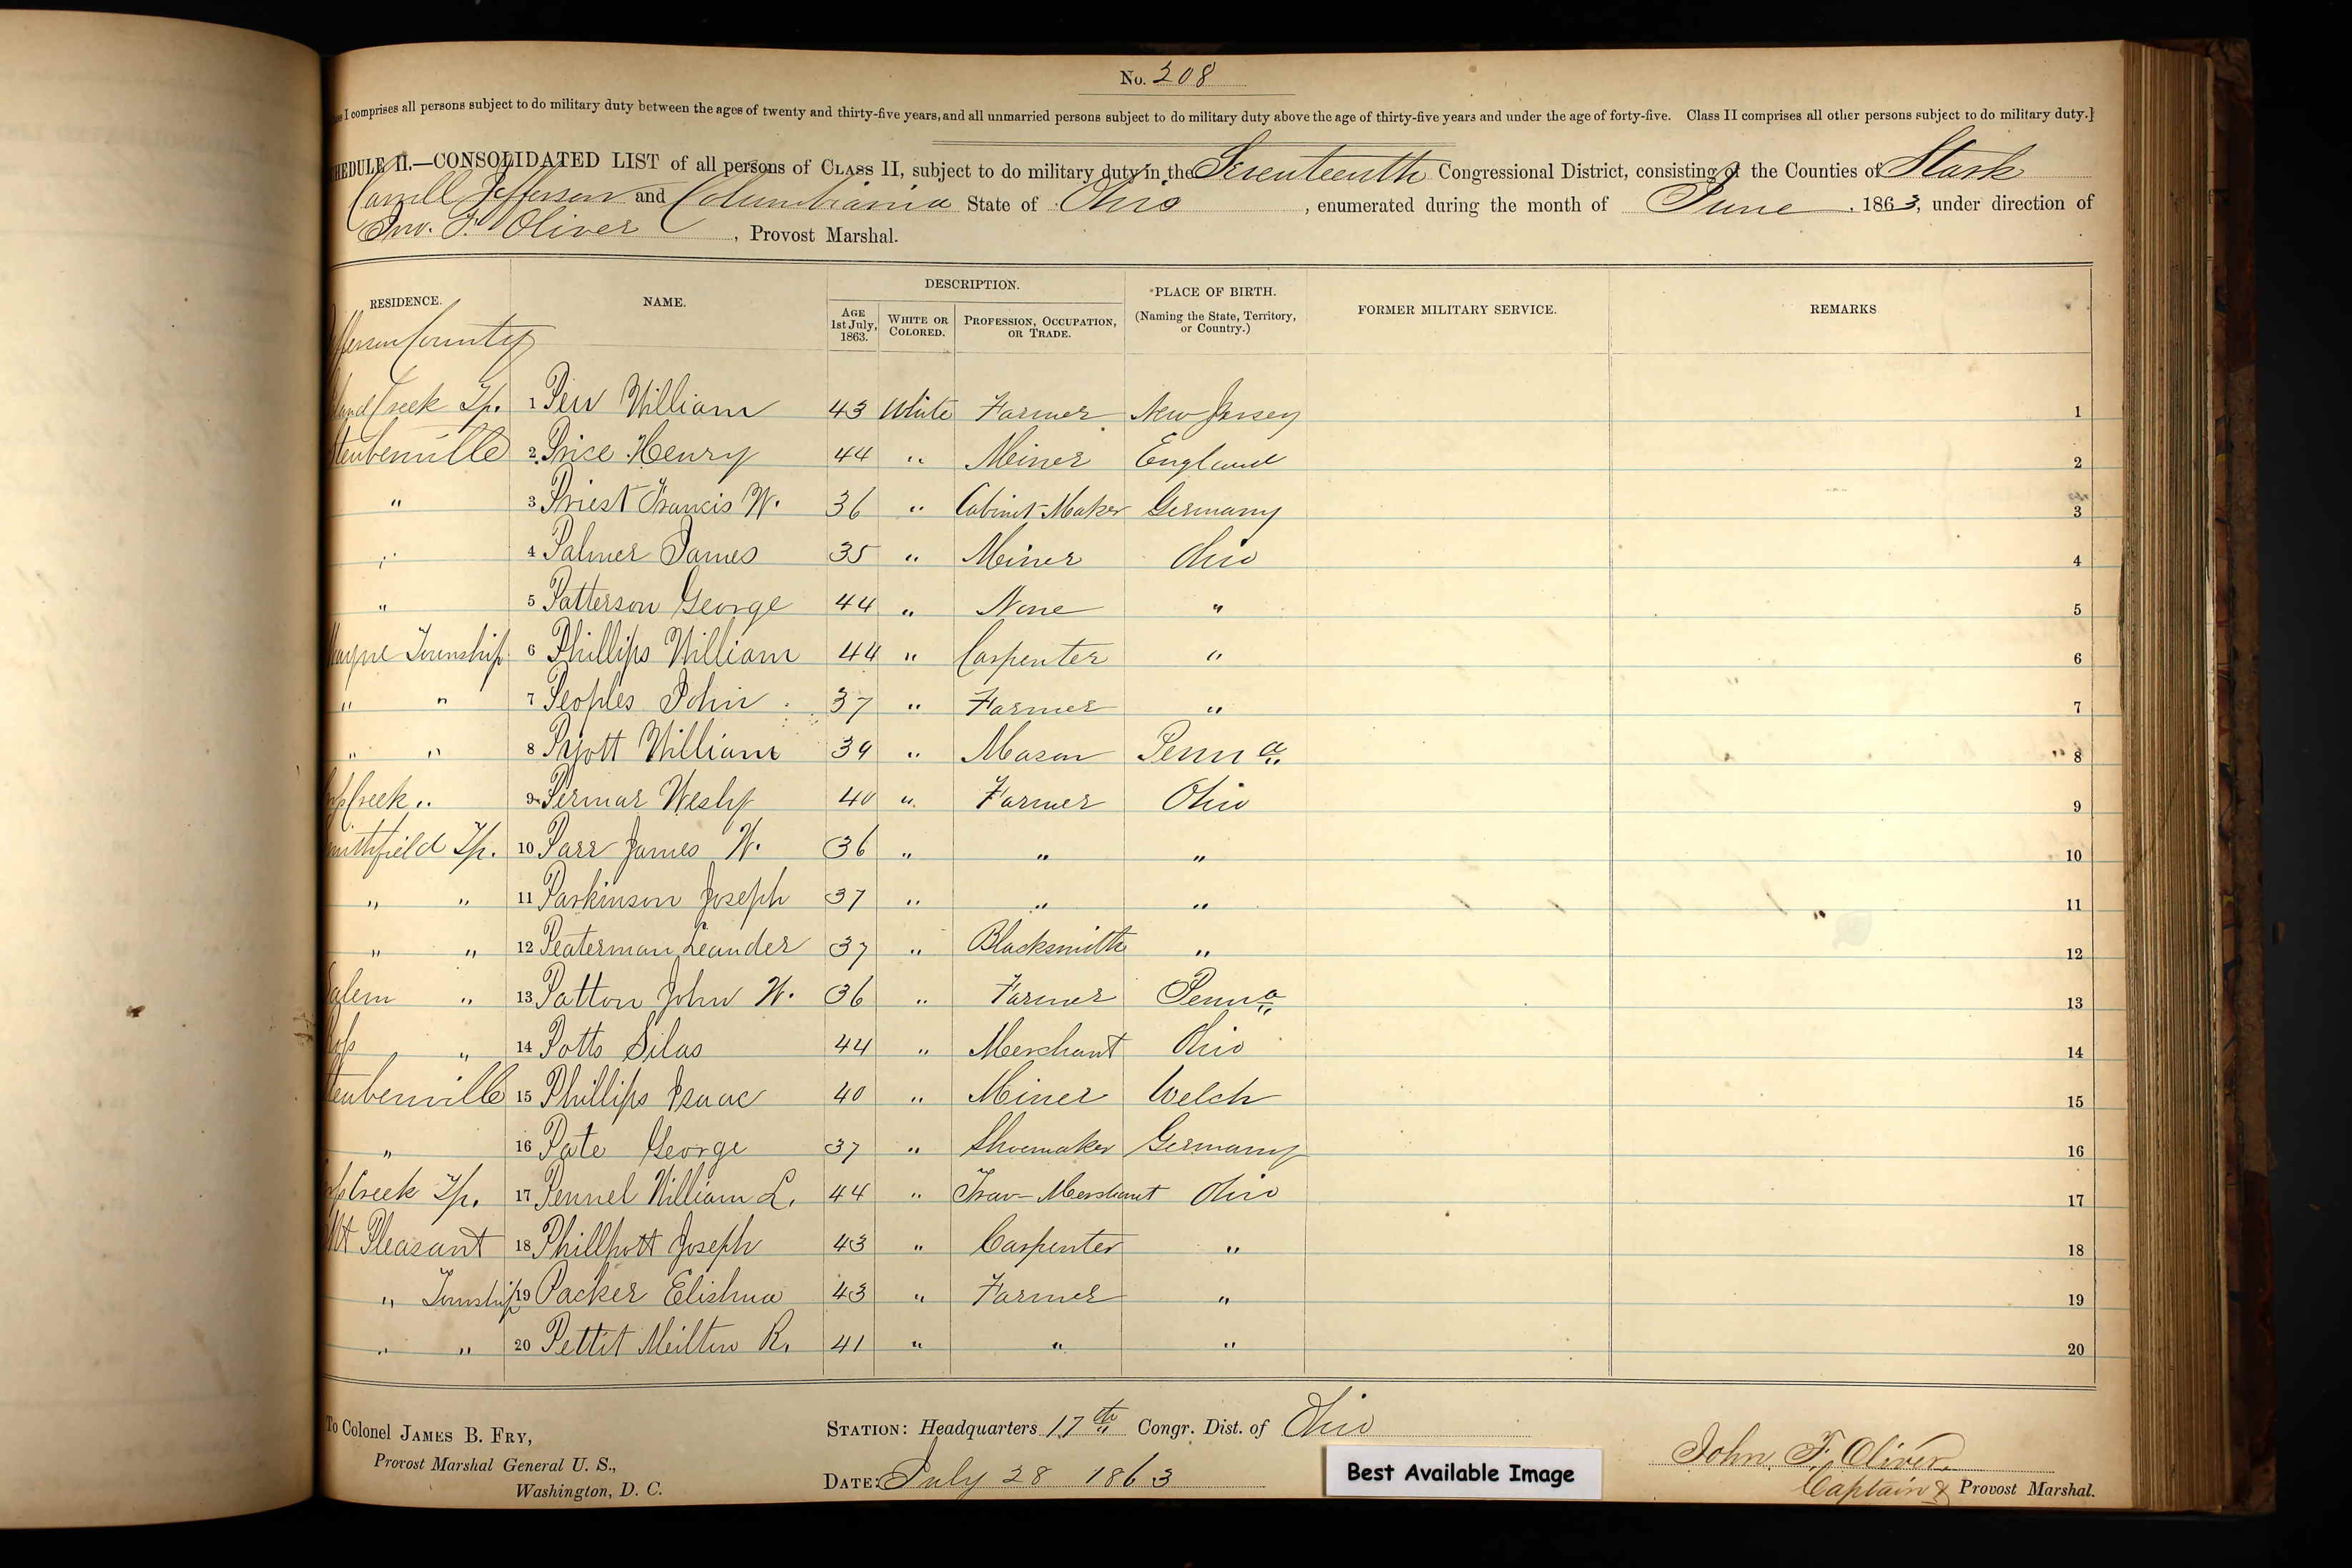 No. 208
ss I comprises all persons subject to do military duty between the ages of twenty and thirty-five years, and all unmarried persons subject to do military duty above the age of thirty-five years and under the age of forty-five. Class II comprises all other persons subject to do military duty.]
HEDULE II.—CONSOLIDATED LIST of all persons of CLASS II, subject to do military duty in the Seventeenth Congressional District, consisting of the Counties of Stark
Carroll, Jefferson and Columbiania State of Ohio, enumerated during the month of June, 1863, under direction of
Jno. F. Oliver, Provost Marshal.
RESIDENCE. NAME. DESCRIPTION. PLACE OF BIRTH. (Naming the State, Territory, or Country.) FORMER MILITARY SERVICE. REMARKS
AGE 1st July, 1863. WHITE OR COLORED. PROFESSION, OCCUPATION, OR TRADE.
fferson County
land Creek Tp. 1 Pew William 43 White Farmer New Jersey 1
teubenville 2 Price Henry 44 " Meiner England 2
" 3 Priest Francis W. 36 " Cabinet-Maker Germany 3
" 4 Palmer James 35 " Meiner Ohio 4
" 5 Patterson George 44 " None " 5
Wayne Township 6 Phillips William 44 " Carpenter " 6
" " 7 Peoples John 37 " Farmer " 7
" " 8 Pyott William 39 " Mason Penna 8
Creek " 9 Permar Wesly 40 " Farmer Ohio 9
mithfield Tp. 10 Parr James W. 36 " " " 10
" " 11 Parkinson Joseph 37 " " " 11
" " 12 Peaterman Leander 37 " Blacksmith " 12
Salem " 13 Patton John W. 36 " Farmer Penna 13
Ross " 14 Potts Silas 44 " Merchant Ohio 14
teubenville 15 Phillips Isaac 40 " Miner Welch 15
" 16 Pate George 37 " Shoemaker Germany 16
Creek Tp. 17 Pennel William L. 44 " Trav- Merchant Ohio 17
Mt Pleasant 18 Phillpott Joseph 43 " Carpenter " 18
" Township 19 Packer Elishua 43 " Farmer " 19
" " 20 Pettit Meilton R. 41 " " " 20
To Colonel JAMES B. FRY,
Provost Marshal General U. S.,
Washington, D. C.
STATION: Headquarters 17th Congr. Dist. of Ohio
DATE: July 28 1863
Best Available Image
John F. Oliver.
Captain & Provost Marshal.